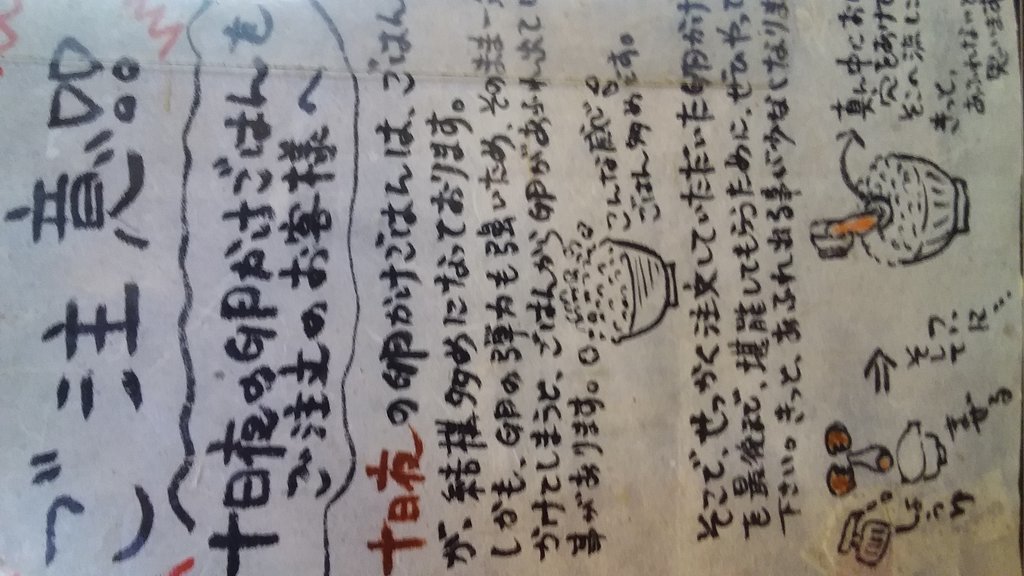 ご注意!!
十日夜の卵かけごはんを
ご注文のお客様へ
十日夜の卵かけごはんは、ごはん
が、結構多めになっております。
しかも、卵の弾力も強いため、そのまま
かけてしまうと、ごはんから卵があふれ出てし
事があります。
こんな感じ。
ごはん多めです。
そこで、せっかく注文していただいた卵かけ
を最後まで、堪能してもらうために、ぜひやって
下さい。きっと、あふれ出る事が少なくなりま
しょうゆ
まぜる
そし
て
に…
真ん中にお
穴をあけて
そこへ流しこ
きっと、
あふれないと
思います